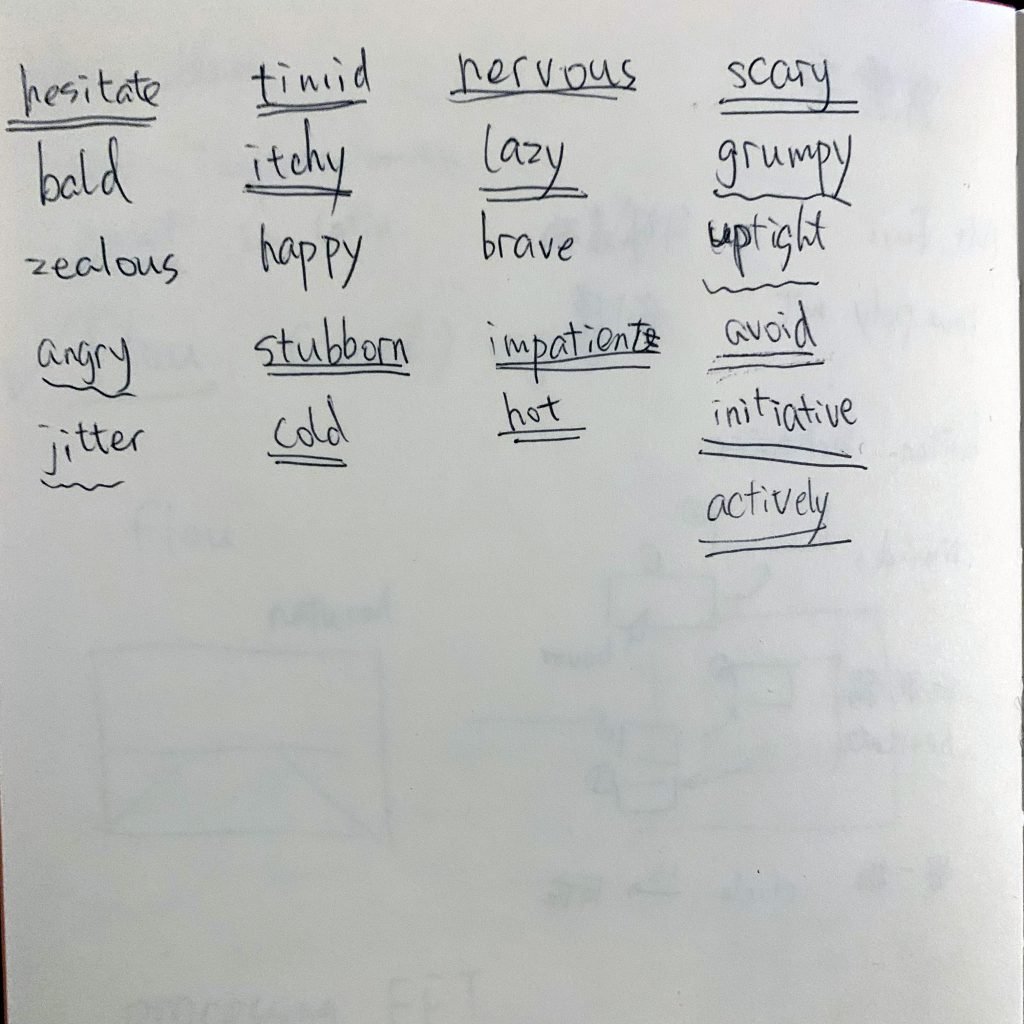 hesitate timid nervous scary
bald itchy lazy grumpy
zealous happy brave uptight
angry stubborn impatient avoid
jitter cold hot initiative
actively